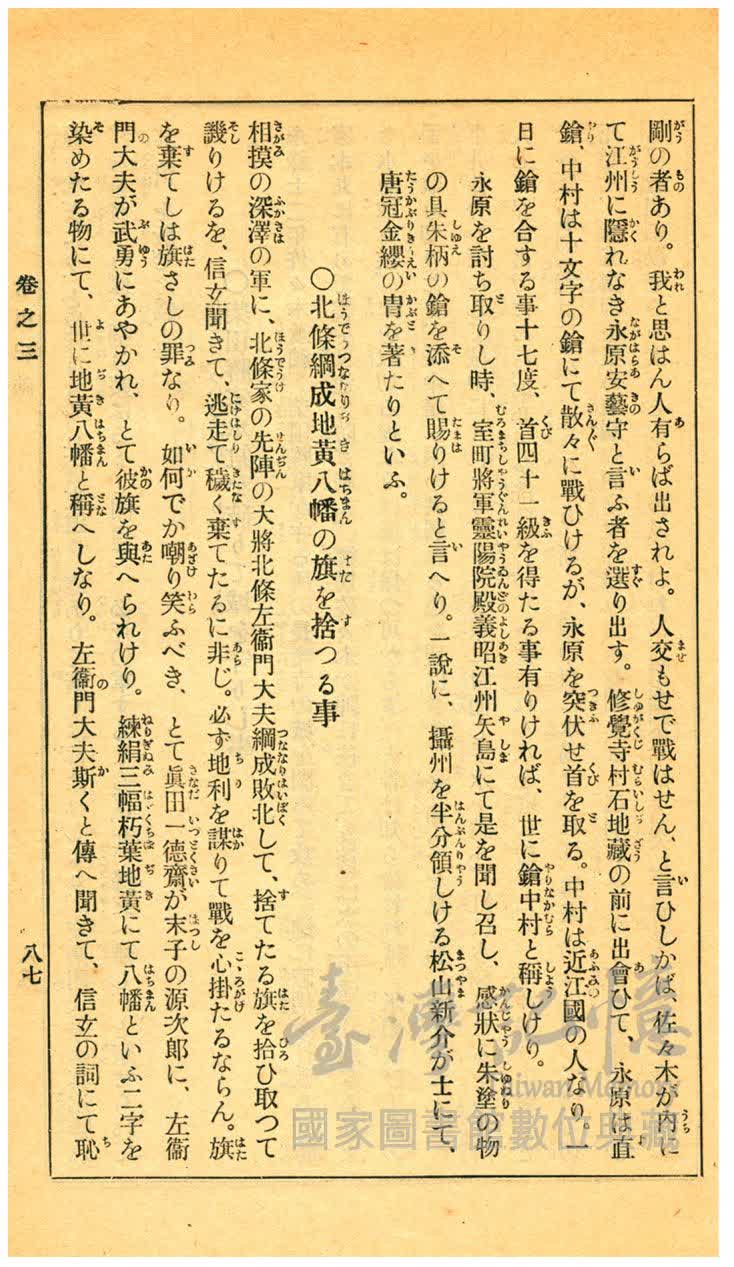 剛の者あり。我と思はん人有らば出されよ。人交もせで戰はせん、と言ひしかば、佐々木が內に
て江州に隱れなき永原安藝守と言ふ者を選り出す。修覺寺村石地藏の前に出會ひて、永原は直
鎗、中村は十文字の鎗にて散々に戰ひけるが、永原を突伏せ首を取る。中村は近江國の人なり。一
日に鎗を合する事十七度、首四十一級を得たる事有りければ、世に鎗中村と稱しけり。
永原を討ち取りし時、室町將軍靈陽院殿義昭江州矢島にて是を聞し召し、感狀に朱塗の物
の具朱柄の鎗を添へて賜りけると言へり。一說に、攝州を半分領しける松山新介が士にて、
唐冠金纓の冑を著たりといふ。
〇北條綱成地黃八幡の旗を捨つる事
相摸の深澤の軍に、北條家の先陣の大將北條左衞門大夫綱成敗北して、捨てたる旗を拾ひ取つて
譏りけるを、信玄聞きて、逃走て穢く棄てたるに非じ。必ず地利を謀りて戰を心掛たるならん。旗
を棄てしは旗さしの罪なり。如何でか嘲り笑ふべき、とて眞田一德齋が末子の源次郎に、左衞
門大夫が武勇にあやかれ、とて彼旗を與へられけり。練絹三幅朽葉地黃にて八幡といふ二字を
染めたる物にて、世に地黃八幡と稱へしなり。左衞門大夫斯くと傳へ聞きて、信玄の詞にて恥
卷之三
八七
臺灣記憶
Taiwan Memory
國家圖書館數位典藏